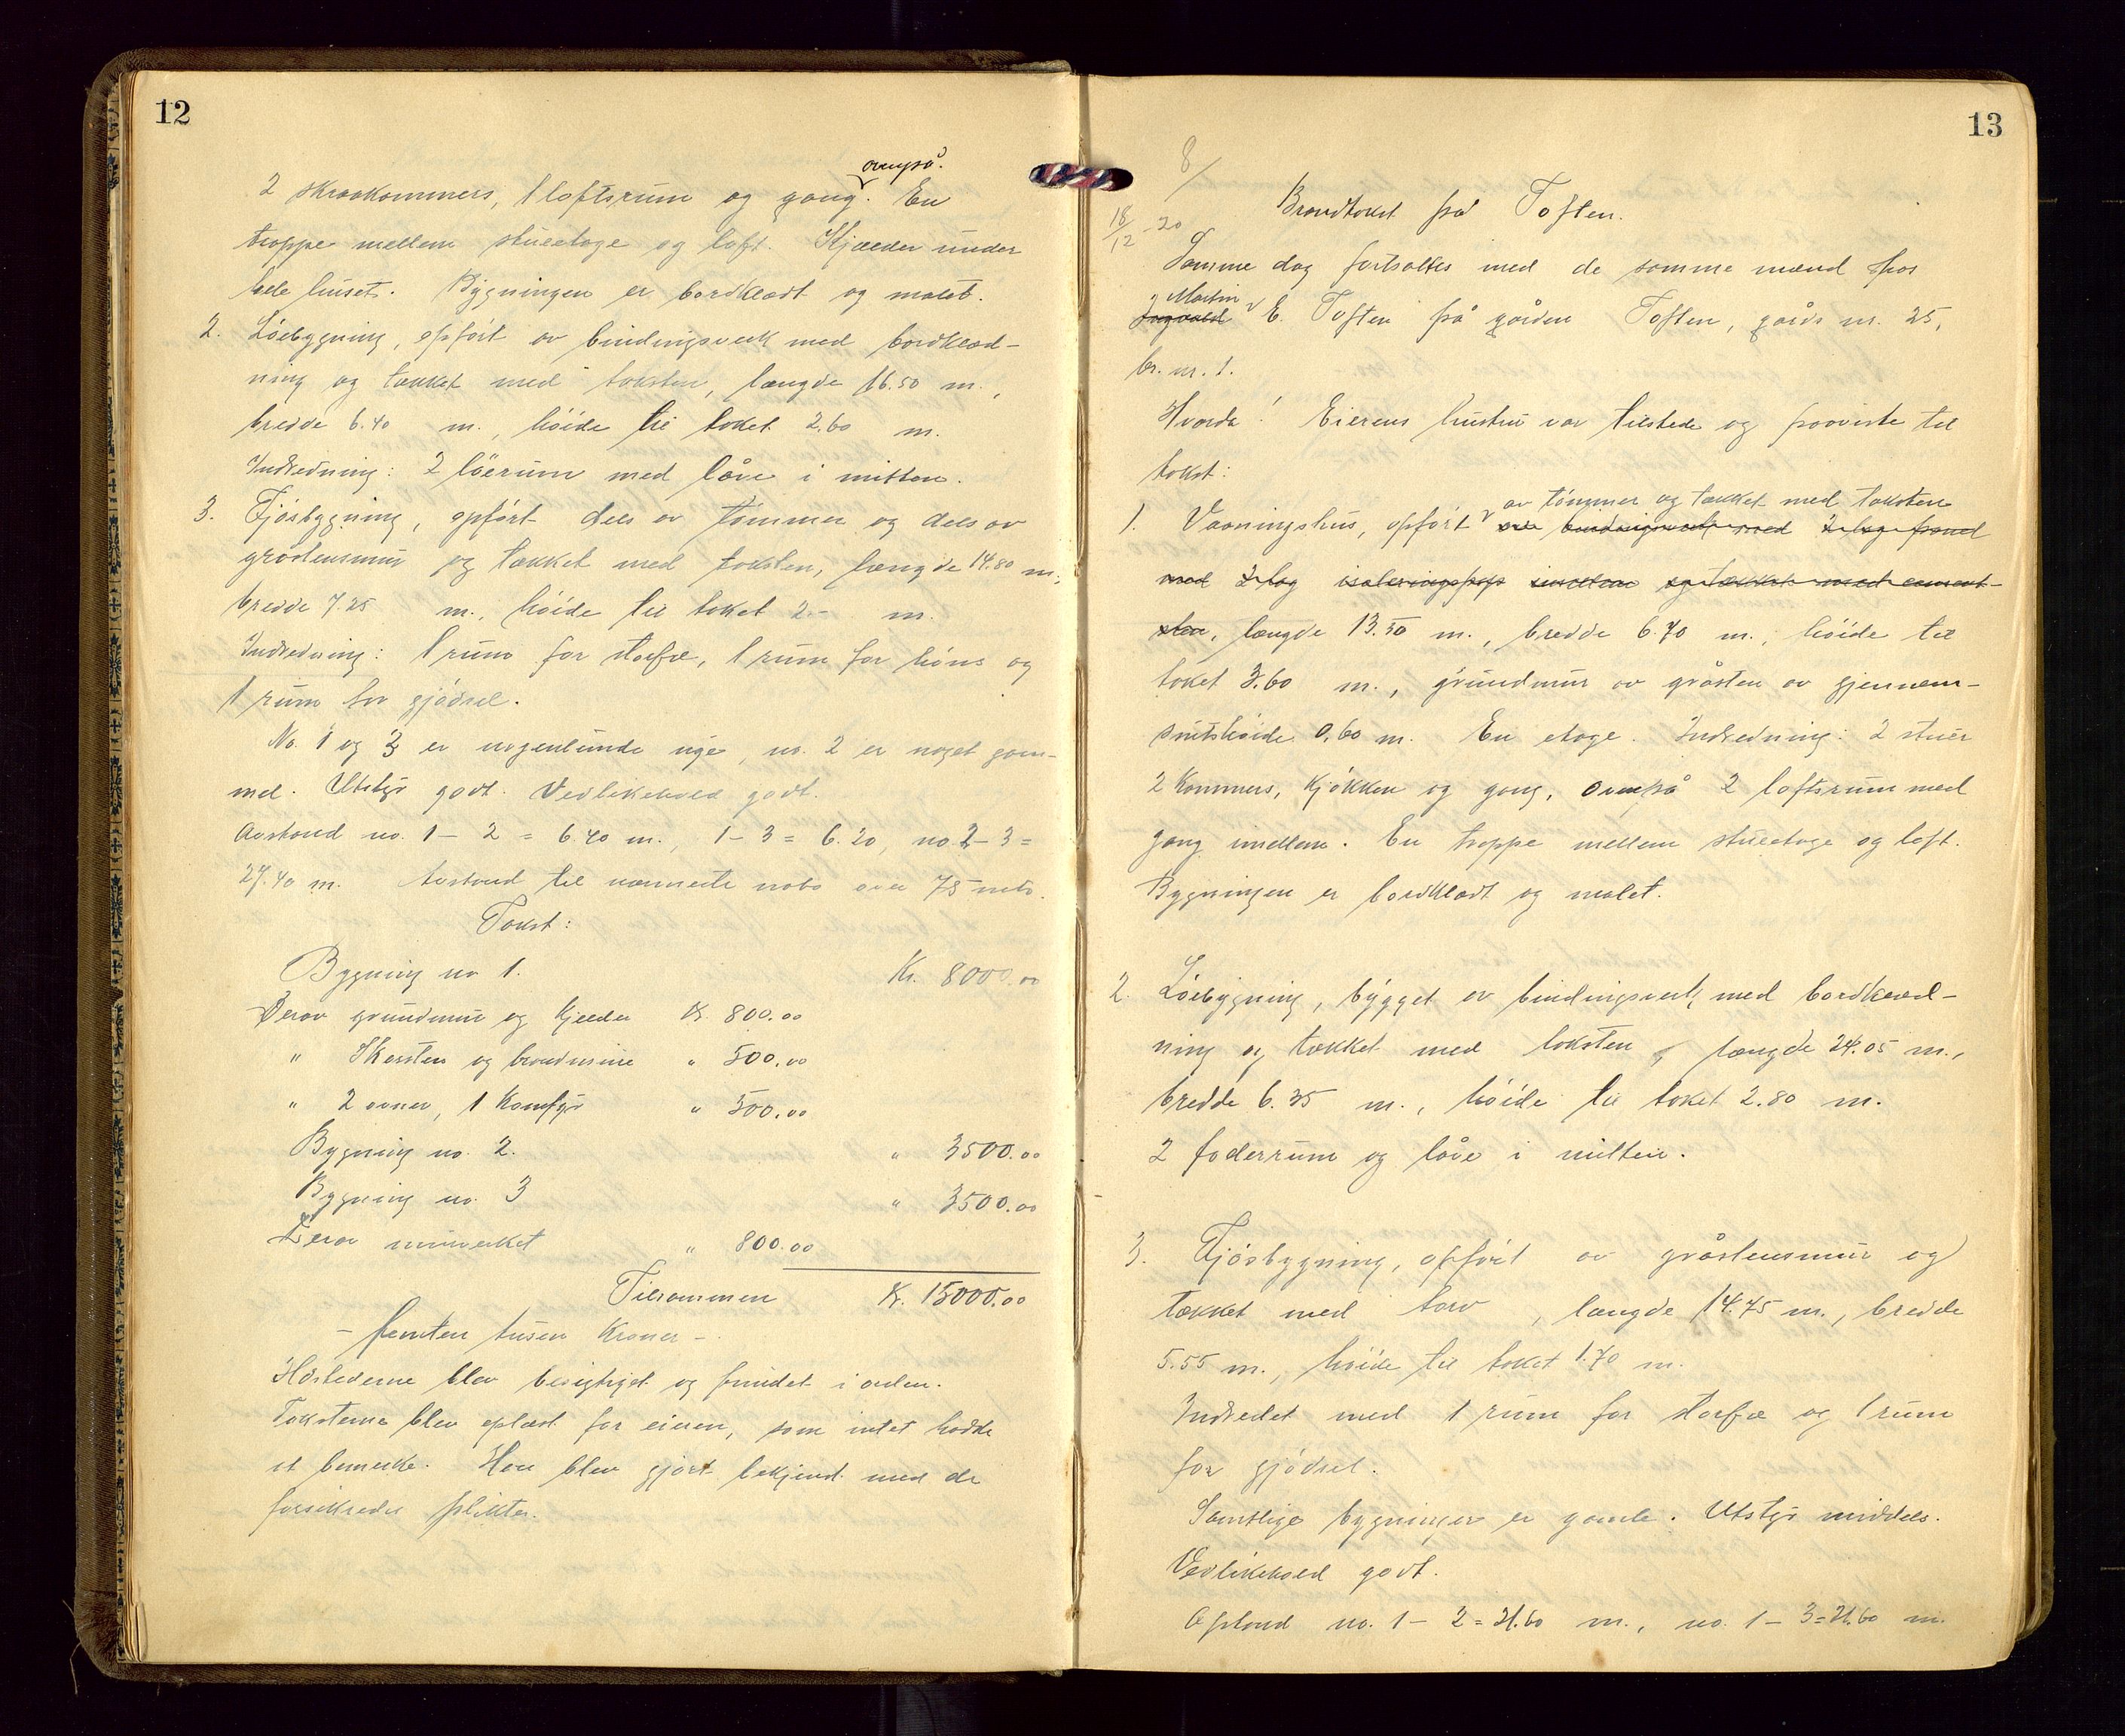 12
ovenpå.
2 skraakammers, 1 loftsrum og gang. En
trappe mellem stueetage og loft. Kjælder under
hele huset. Bygningen er bordklædt og malet.
2. Löebygning, opført av bindingsverk med bordklæd-
ning og tækket med taksten, længde 16.50 m.,
bredde 6.40 m., höide til taket 2.60 m.
Indredning: 2 löerum med låve i midten.
3. Fjösbygning, opført dels av tömmer og dels av
gråstensmur og tækket med taksten, længde 14.80 m,
bredde 7.25 m., höide til taket 2.- m.
Indredning: 1 rum for storfæ, 1 rum for höns og
1 rum for gjödsel.
No. 1 og 3 er nogenlunde nye, no. 2 er noget gam-
mel. Utstyr godt. Vedlikehold godt.
Avstand no. 1 - 2 = 6.40 m., 1 - 3 = 6.20, no. 2 - 3 =
27.40 m. Avstand til nærmeste nabo over 75 mtr.
Takst:
Bygning no 1. Kr. 8000.00
Derav grundmur og kjelder Kr. 800.00
" Skorsten og brandmure " 500.00
" 2 ovner, 1 Komfyr " 500.00
Bygning no. 2. " 3500.00
Bygning no. 3 " 3500.00
Derav murverket " 800.00
Tilsammen Kr. 15000.00
- femten tusen Kroner -
Ildstederne blev besigtiget og fundet i orden.
Taksterne blev oplæst for eieren, som intet hadde
at bemerke. Han blev gjort bekjendt med de
forsikredes plikter.
13
8/
18/12 - 20
Brandtakst på Toften.
Samme dag fortsattes med de samme mænd hos
Martin
Ingvald E. Toften på gården Toften, gårds nr. 25,
br. nr. 1.
Hvorda! Eierens hustru var tilstede og paaviste til
takst:
av tömmer og tækket med taksten
1. Vaaningshus, opført av bindingsverk med 2 lag panel
med 2 lag isoleringspap imellem og tækket med cement-
sten, længde 13.50 m., bredde 6.70 m., höide til
taket 3.60 m., grundmur av gråsten av gjennem-
snitshöide 0,60 m. En etage. Indredning: 2 stuer
2 Kammers, Kjökken og gang, ovenpå 2 loftsrum med
gang imellem. En trappe mellem stueetage og loft.
Bygningen er bordklædt og malet.
2. Löebygning, bygget av bindingsverk med bordklæd-
ning og tækket med taksten, længde 24.05 m.,
bredde 6.35 m., höide til taket 2.80 m.
2 foderrum og låve i midten.
3. Fjösbygning, opført av gråstensmur og
tækket med torv, længde 14.75 m., bredde
5.55 m., höide til taket 1.70 m.
Indredet med 1 rum for storfæ og 1 rum
for gjödsel.
Samtlige bygninger er gamle. Utstyr middels.
Vedlikehold godt.
Afstand no. 1 - 2 = 21.60 m., no. 1 - 3 = 21.60 m.